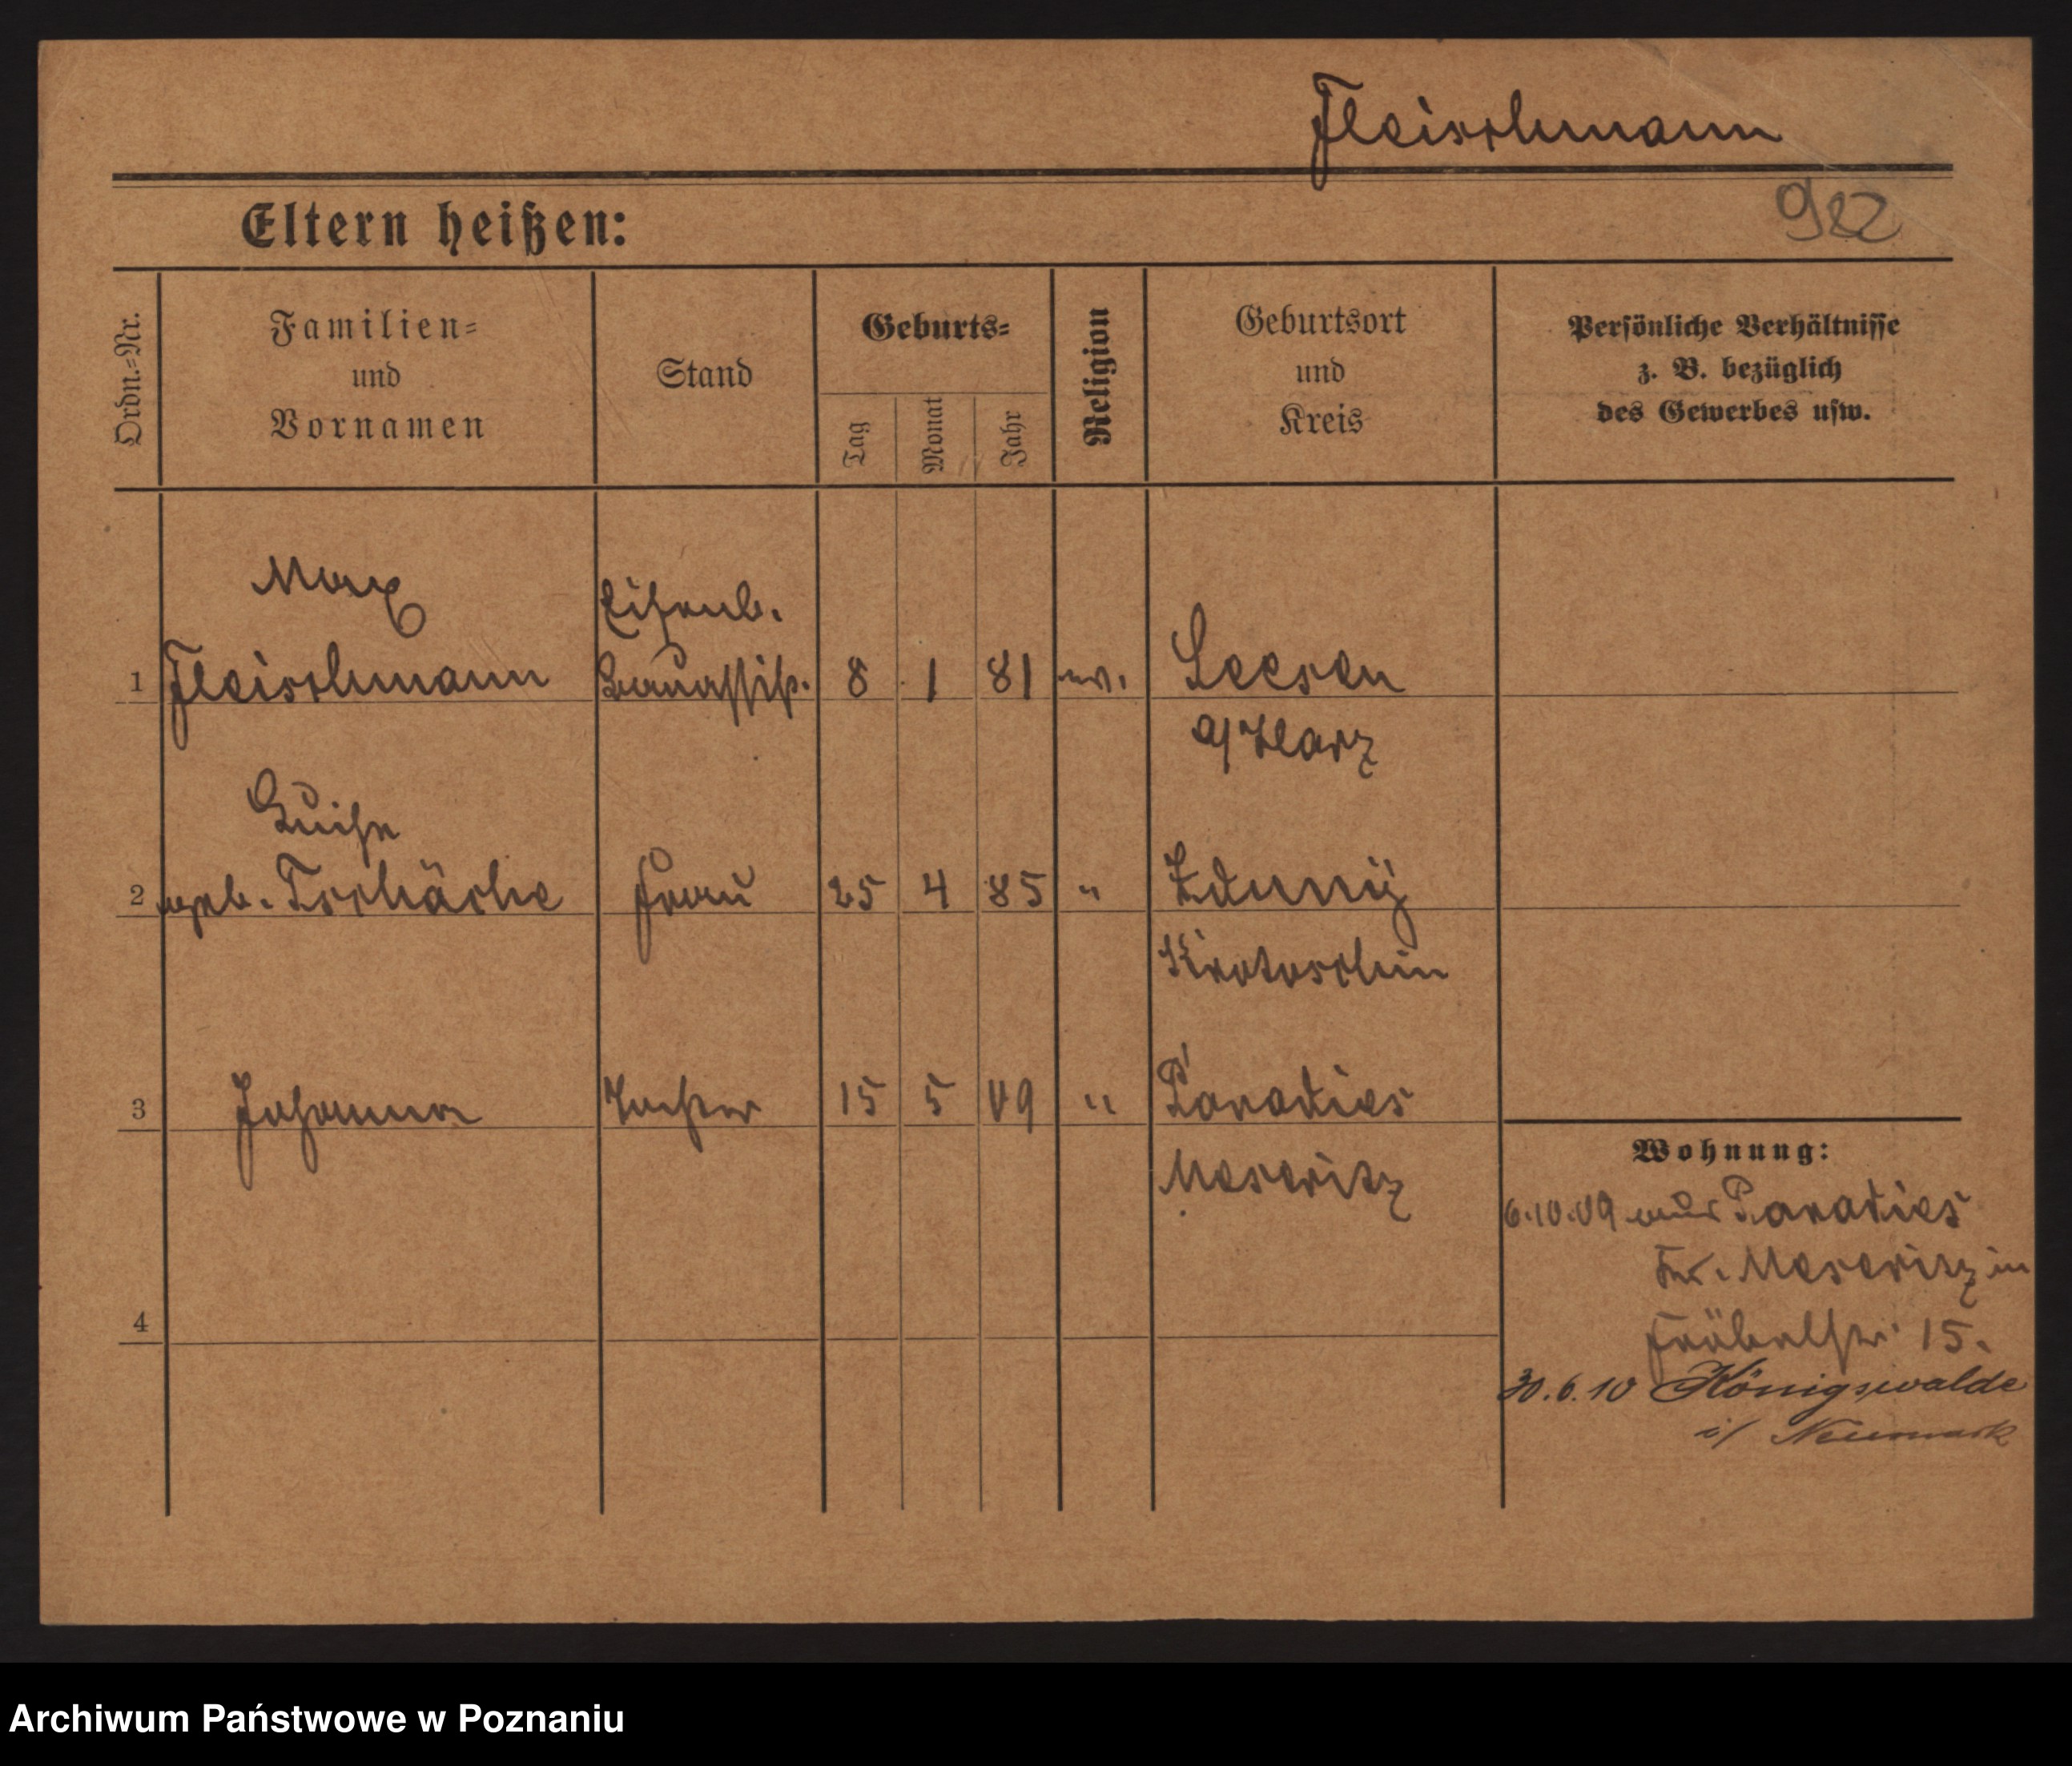 Fleischmann
982
Eltern heißen:
Ordn.=Nr.
Familien=
und
Vornamen
Stand
Geburts=
Tag
Monat
Jahr
Religion
Geburtsort
und
Kreis
Persönliche Verhältnisse
z. B. bezüglich
des Gewerbes usw.
Max
Eisenb.
1 Fleischmann Bauassist. 8 1 81 ev. Seesen
a/Harz
Luise
2 geb. Tschäche Frau 25 4 85 " Zduny
Krotoschin
3 Johanna Tochter 15 5 09 " Paradies
Meseritz
Wohnung:
6.10.09 aus Paradies
Kr. Meseritz in
Fröbelstr. 15.
4
30.6.10 Königswalde
i/ Neumark
Archiwum Państwowe w Poznaniu